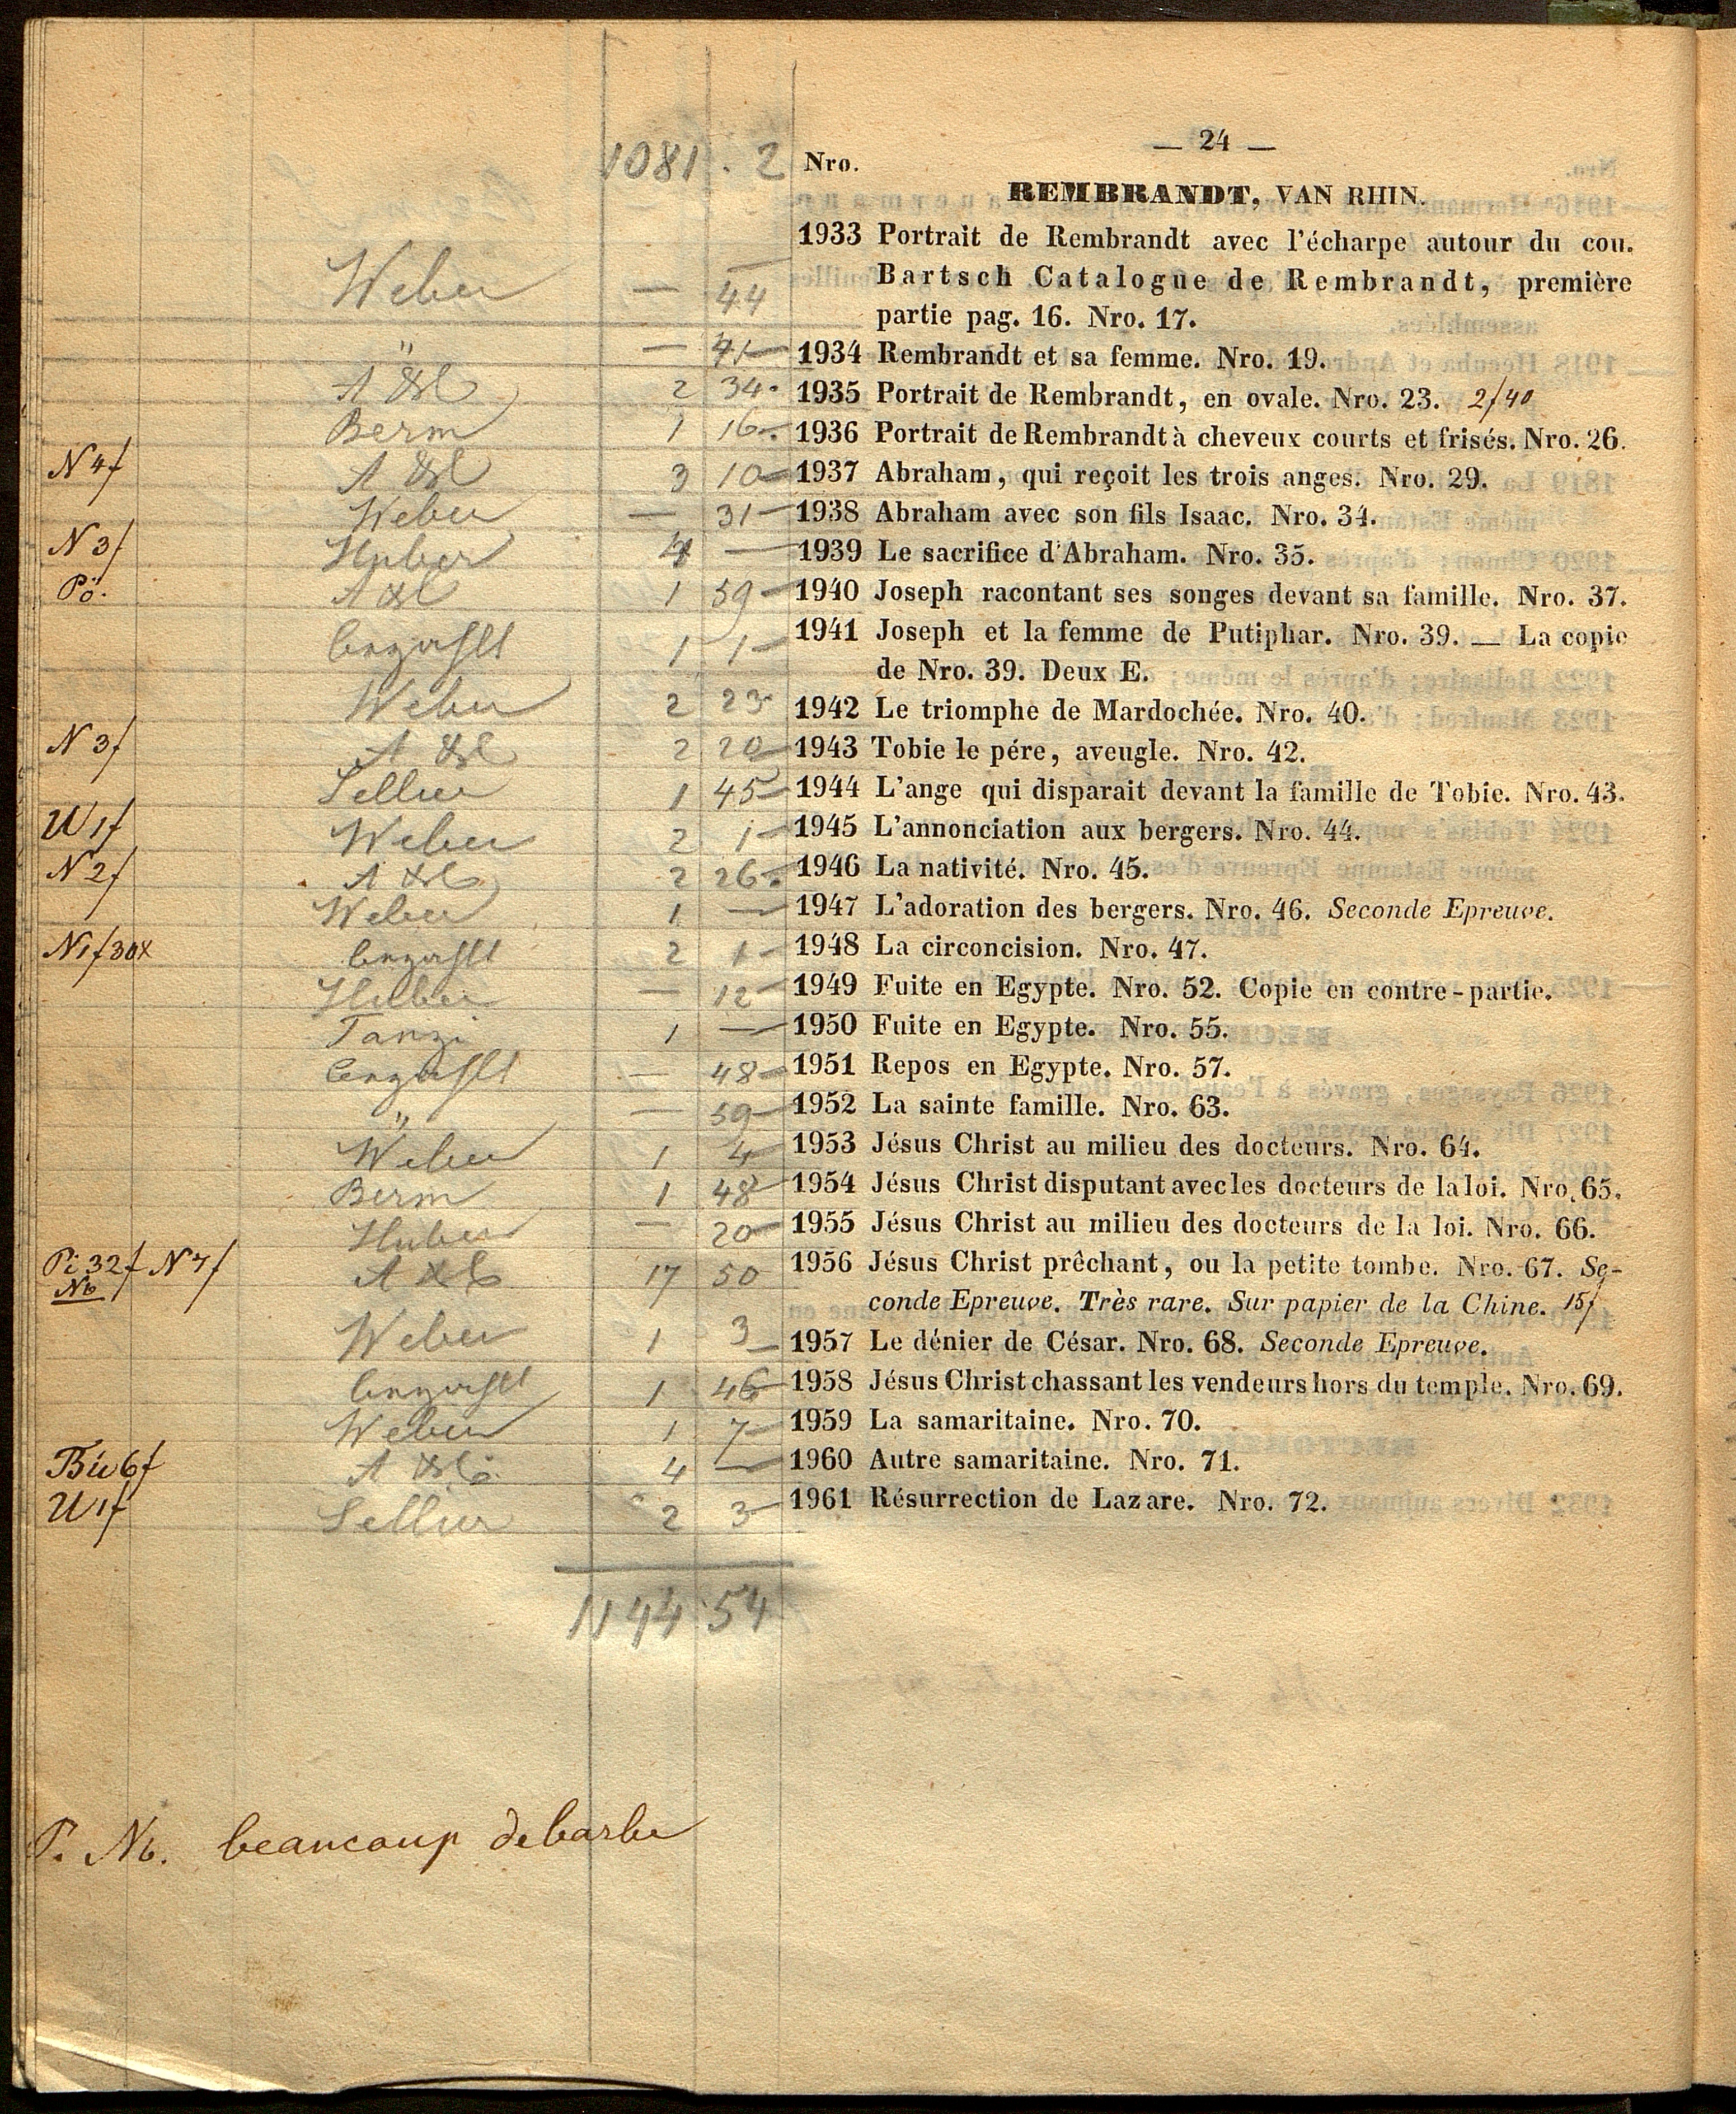 — 24 —
1081 . 2 Nro.
REMBRANDT, VAN RHIN.
1933 Portrait de Rembrandt avec l'écharpe autour du cou.
Weber — 44 Bartsch Catalogue de Rembrandt, première
partie pag. 16. Nro. 17.
" — 41 — 1934 Rembrandt et sa femme. Nro. 19.
2 34 · 1935 Portrait de Rembrandt, en ovale. Nro. 23. 2f40
Berm 1 16 — 1936 Portrait de Rembrandt à cheveux courts et frisés. Nro. 26.
N 4f 3 10 — 1937 Abraham, qui reçoit les trois anges. Nro. 29.
Weber — 31 — 1938 Abraham avec son fils Isaac. Nro. 34.
N 3f Huber 4 — 1939 Le sacrifice d'Abraham. Nro. 35.
Pö. 1 59 — 1940 Joseph racontant ses songes devant sa famille. Nro. 37.
1 1 — 1941 Joseph et la femme de Putiphar. Nro. 39. — La copie
de Nro. 39. Deux E.
Weber 2 23 1942 Le triomphe de Mardochée. Nro. 40.
N 3f 2 20 — 1943 Tobie le pére, aveugle. Nro. 42.
1 45 — 1944 L'ange qui disparait devant la famille de Tobie. Nro. 43.
W 1f Weber 2 1 — 1945 L'annonciation aux bergers. Nro. 44.
N 2f 2 26 — 1946 La nativité. Nro. 45.
Weber 1 — 1947 L'adoration des bergers. Nro. 46. Seconde Epreuve.
N1f30x 2 1 — 1948 La circoncision. Nro. 47.
— 12 — 1949 Fuite en Egypte. Nro. 52. Copie en contre-partie.
Tanzi 1 — 1950 Fuite en Egypte. Nro. 55.
— 48 — 1951 Repos en Egypte. Nro. 57.
" — 59 — 1952 La sainte famille. Nro. 63.
Weber 1 4 — 1953 Jésus Christ au milieu des docteurs. Nro. 64.
Berm 1 48 — 1954 Jésus Christ disputant avec les docteurs de la loi. Nro. 65.
Huber — 20 — 1955 Jésus Christ au milieu des docteurs de la loi. Nro. 66.
Pi 32f N 7f 17 50 1956 Jésus Christ prêchant, ou la petite tombe. Nro. 67. Se-
Nb conde Epreuve. Très rare. Sur papier de la Chine. 15f
Weber 1 3 — 1957 Le dénier de César. Nro. 68. Seconde Epreuve.
1 46 — 1958 Jésus Christ chassant les vendeurs hors du temple. Nro. 69.
Weber 1 7 — 1959 La samaritaine. Nro. 70.
6f 4 — 1960 Autre samaritaine. Nro. 71.
1f 2 3 — 1961 Résurrection de Lazare. Nro. 72.
1144 54
P. Nb. beaucoup de barbe